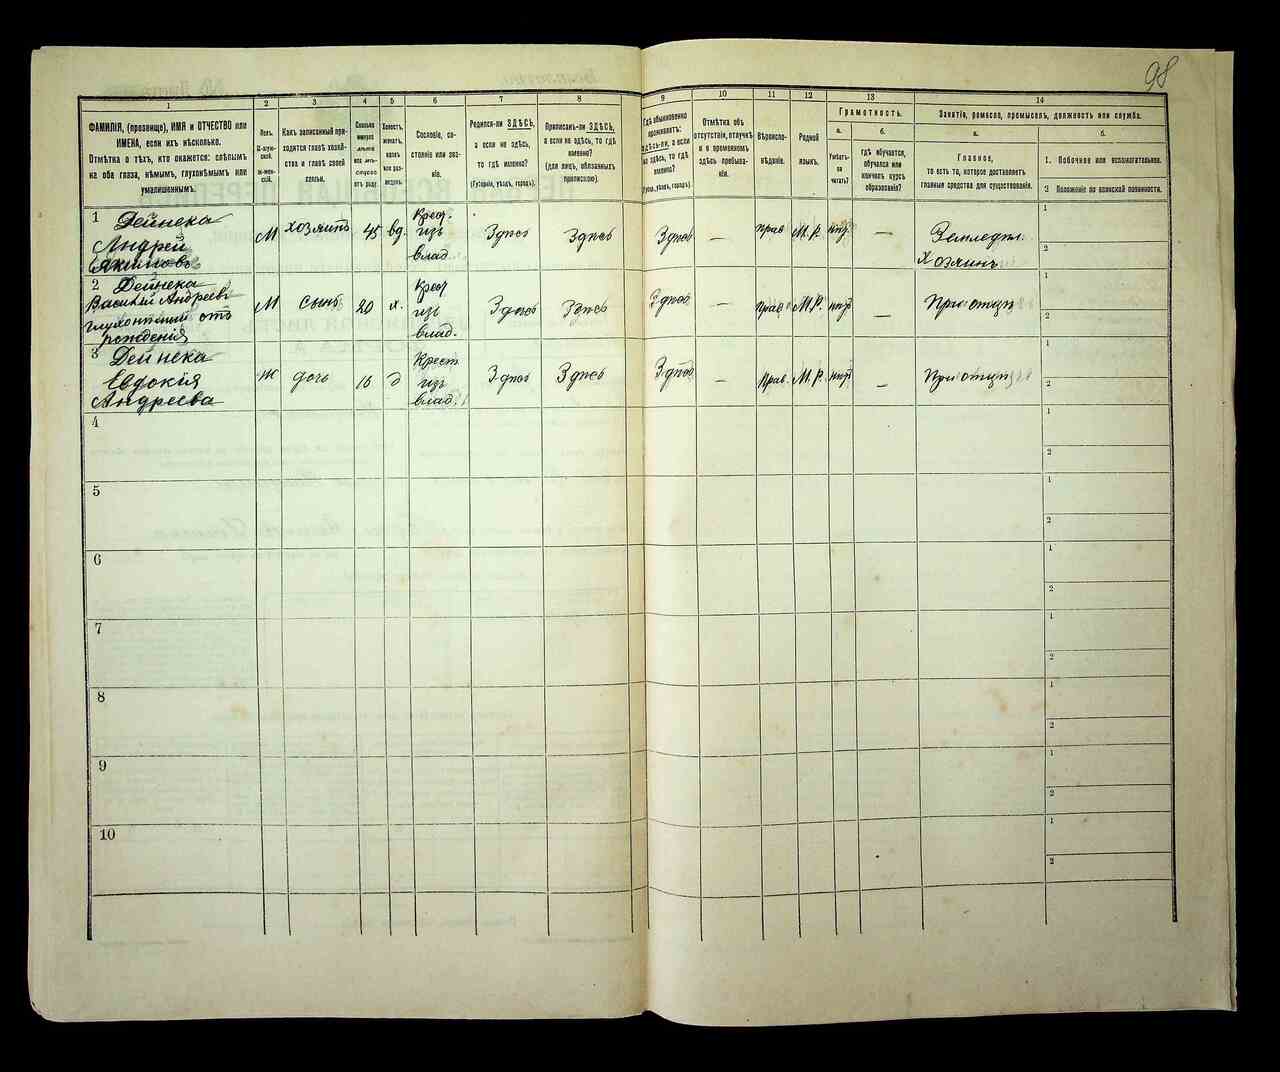 98
1 2 3 4 5 6 7 8 9 10 11 12 13 14
ФАМИЛІЯ, (прозвище), ИМЯ и ОТЧЕСТВО или
ИМЕНА, если ихъ нѣсколько.
Отмѣтка о тѣхъ, кто окажется: слѣпымъ
на оба глаза, нѣмымъ, глухонѣмымъ или
умалишеннымъ.
Полъ.
М-муж-
ской.
Ж-жен-
скій.
Какъ записанный при-
ходится главѣ хозяй-
ства и главѣ своей
семьи.
Сколько
минуло
лѣтъ
или мѣ-
сяцевъ
отъ роду.
Холостъ,
женатъ,
вдовъ
или раз-
веденъ.
Сословіе, со-
стояніе или зва-
ніе.
Родился-ли ЗДѢСЬ,
а если не здѣсь,
то гдѣ именно?
(Губернія, уѣздъ, городъ).
Приписанъ-ли ЗДѢСЬ,
а если не здѣсь, то гдѣ
именно?
(для лицъ, обязанныхъ
припискою).
Гдѣ обыкновенно
проживаетъ:
здѣсь-ли, а если
не здѣсь, то гдѣ
именно?
Отмѣтка объ
отсутствіи, отлучкѣ
и о временномъ
здѣсь пребыва-
ніи.
Вѣроиспо-
вѣданіе.
Родной
языкъ.
Грамотность.
а.
б.
Умѣетъ-
ли
читать?
гдѣ обучается,
обучался или
кончилъ курсъ
образованія?
Занятіе, ремесло, промыселъ, должность или служба.
а.
б.
Главное,
то есть то, которое доставляетъ
главныя средства для существованія.
1. Побочное или вспомогательное.
2 Положеніе по воинской повинности.
1 Дейнека
Андрей
Якимовъ
М хозяинъ 45 вд.
Крест.
изъ
влад.
Здѣсь Здѣсь Здѣсь — прав М.Р. нѣтъ —
Земледѣл.
хозяинъ
1
2
2 Дейнека
Василій Андреевъ
глухонѣмый отъ
рожденія
М сынъ 20 х.
Крест
изъ
влад.
Здѣсь Здѣсь Здѣсь — прав М.Р. нѣтъ —
При отцѣ
1
2
3 Дейнека
Евдокія
Андреева
Ж дочь 16 д
Крест
изъ
влад.
Здѣсь Здѣсь Здѣсь — Прав. М.Р. нѣтъ —
При отцѣ
1
2
4
1
2
5
1
2
6
1
2
7
1
2
8
1
2
9
1
2
10
1
2